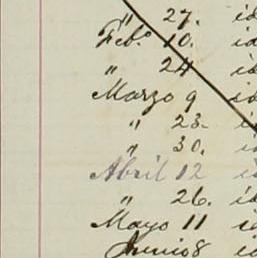 " 27. id
Feb.o 10. id
" 24 id
Marzo 9 id
" 23. id
" 30. id
Abril 12 id
" 26. id
Mayo 11 id
Junio 8 id